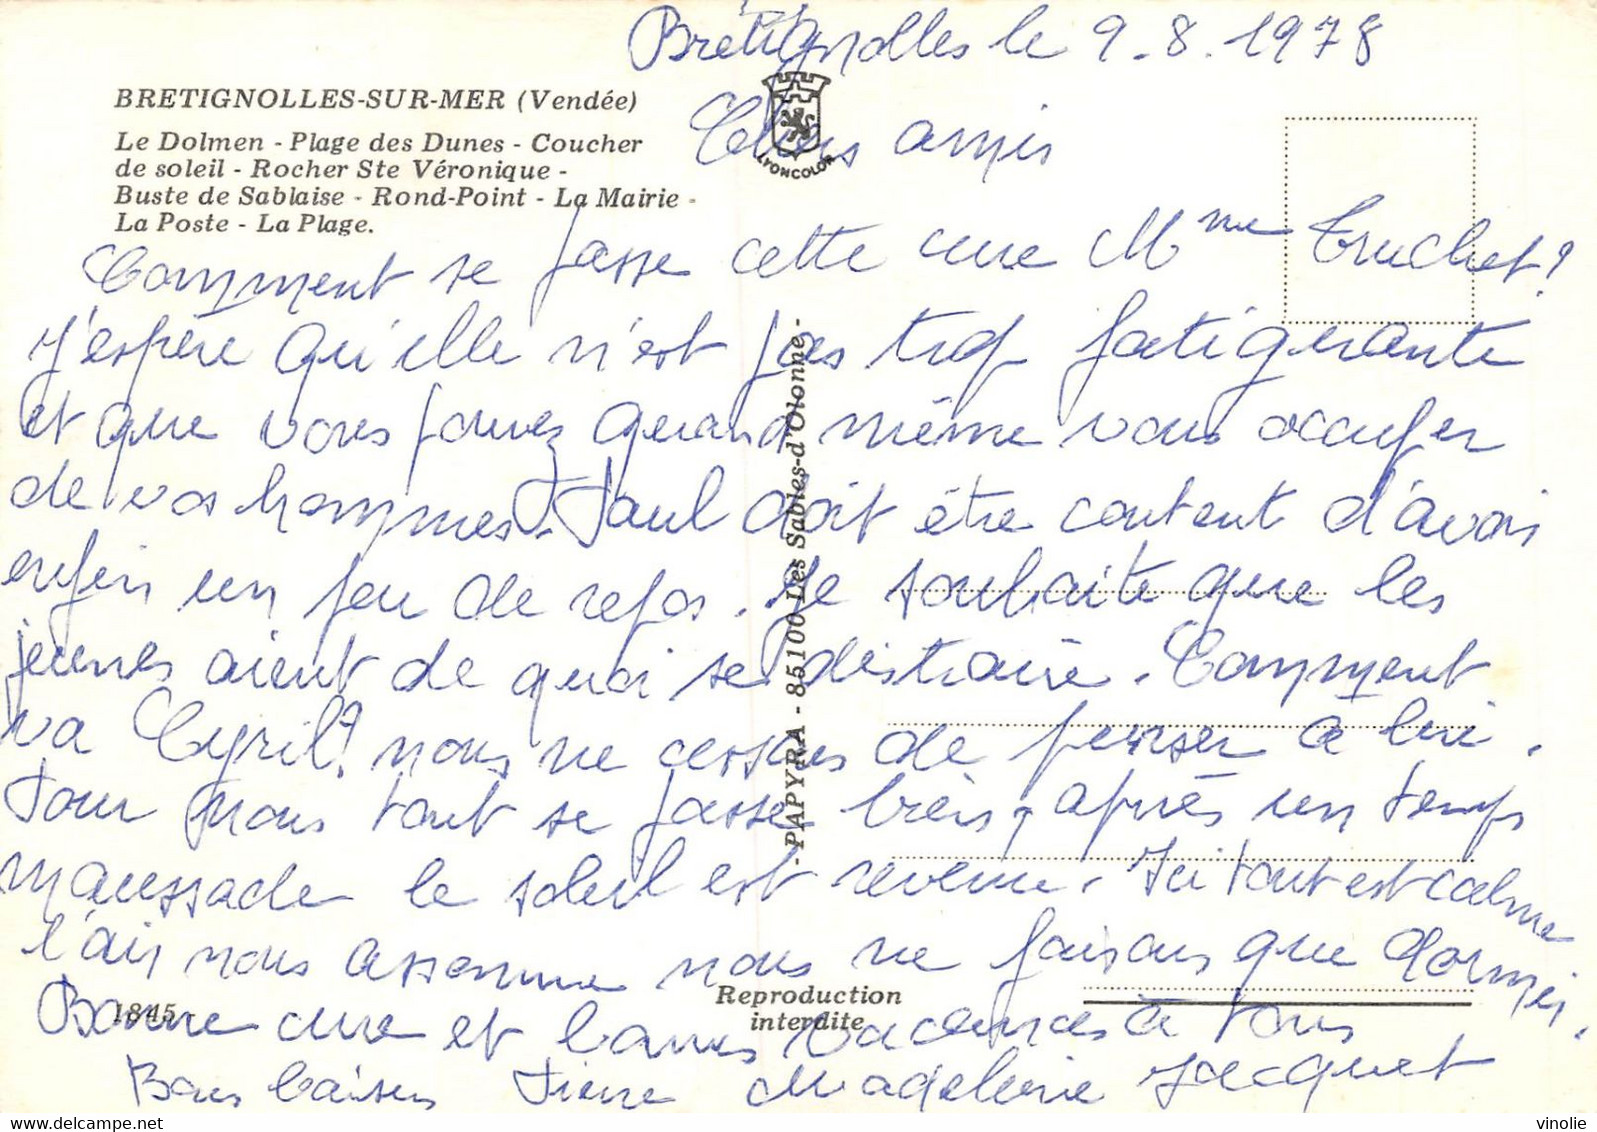 Brétignolles le 9.8.1978
BRETIGNOLLES-SUR-MER (Vendée)
Le Dolmen - Plage des Dunes - Coucher
de soleil - Rocher Ste Véronique -
Buste de Sablaise - Rond-Point - La Mairie -
La Poste - La Plage.
LYONCOLOR
Chers amis
Comment se passe cette cure Mme Truchet?
J'espère qu'elle n'est pas trop fatigante
et que vous pouvez quand même vous occuper
de vos hommes. Paul doit être content d'avoir
enfin un peu de repos. Je souhaite que les
jeunes aient de quoi se distraire. Comment
va Cyril? nous ne cessons de penser à lui.
Pour nous tout se passe bien, après un temps
maussade le soleil est revenu. Ici tout est calme
l'air nous assomme nous ne faisons que dormir.
Bonne cure et bonnes vacances à tous
Bons baisers Pierre Madeleine Jacquet
- PAPYRA - 85100 Les Sables-d'Olonne -
1845
Reproduction
interdite
vinolie